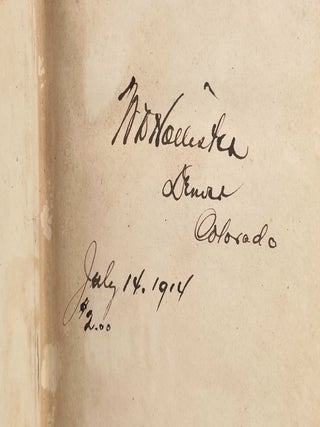 W D Hollister
Denver
Colorado
July 14. 1914
$2.00